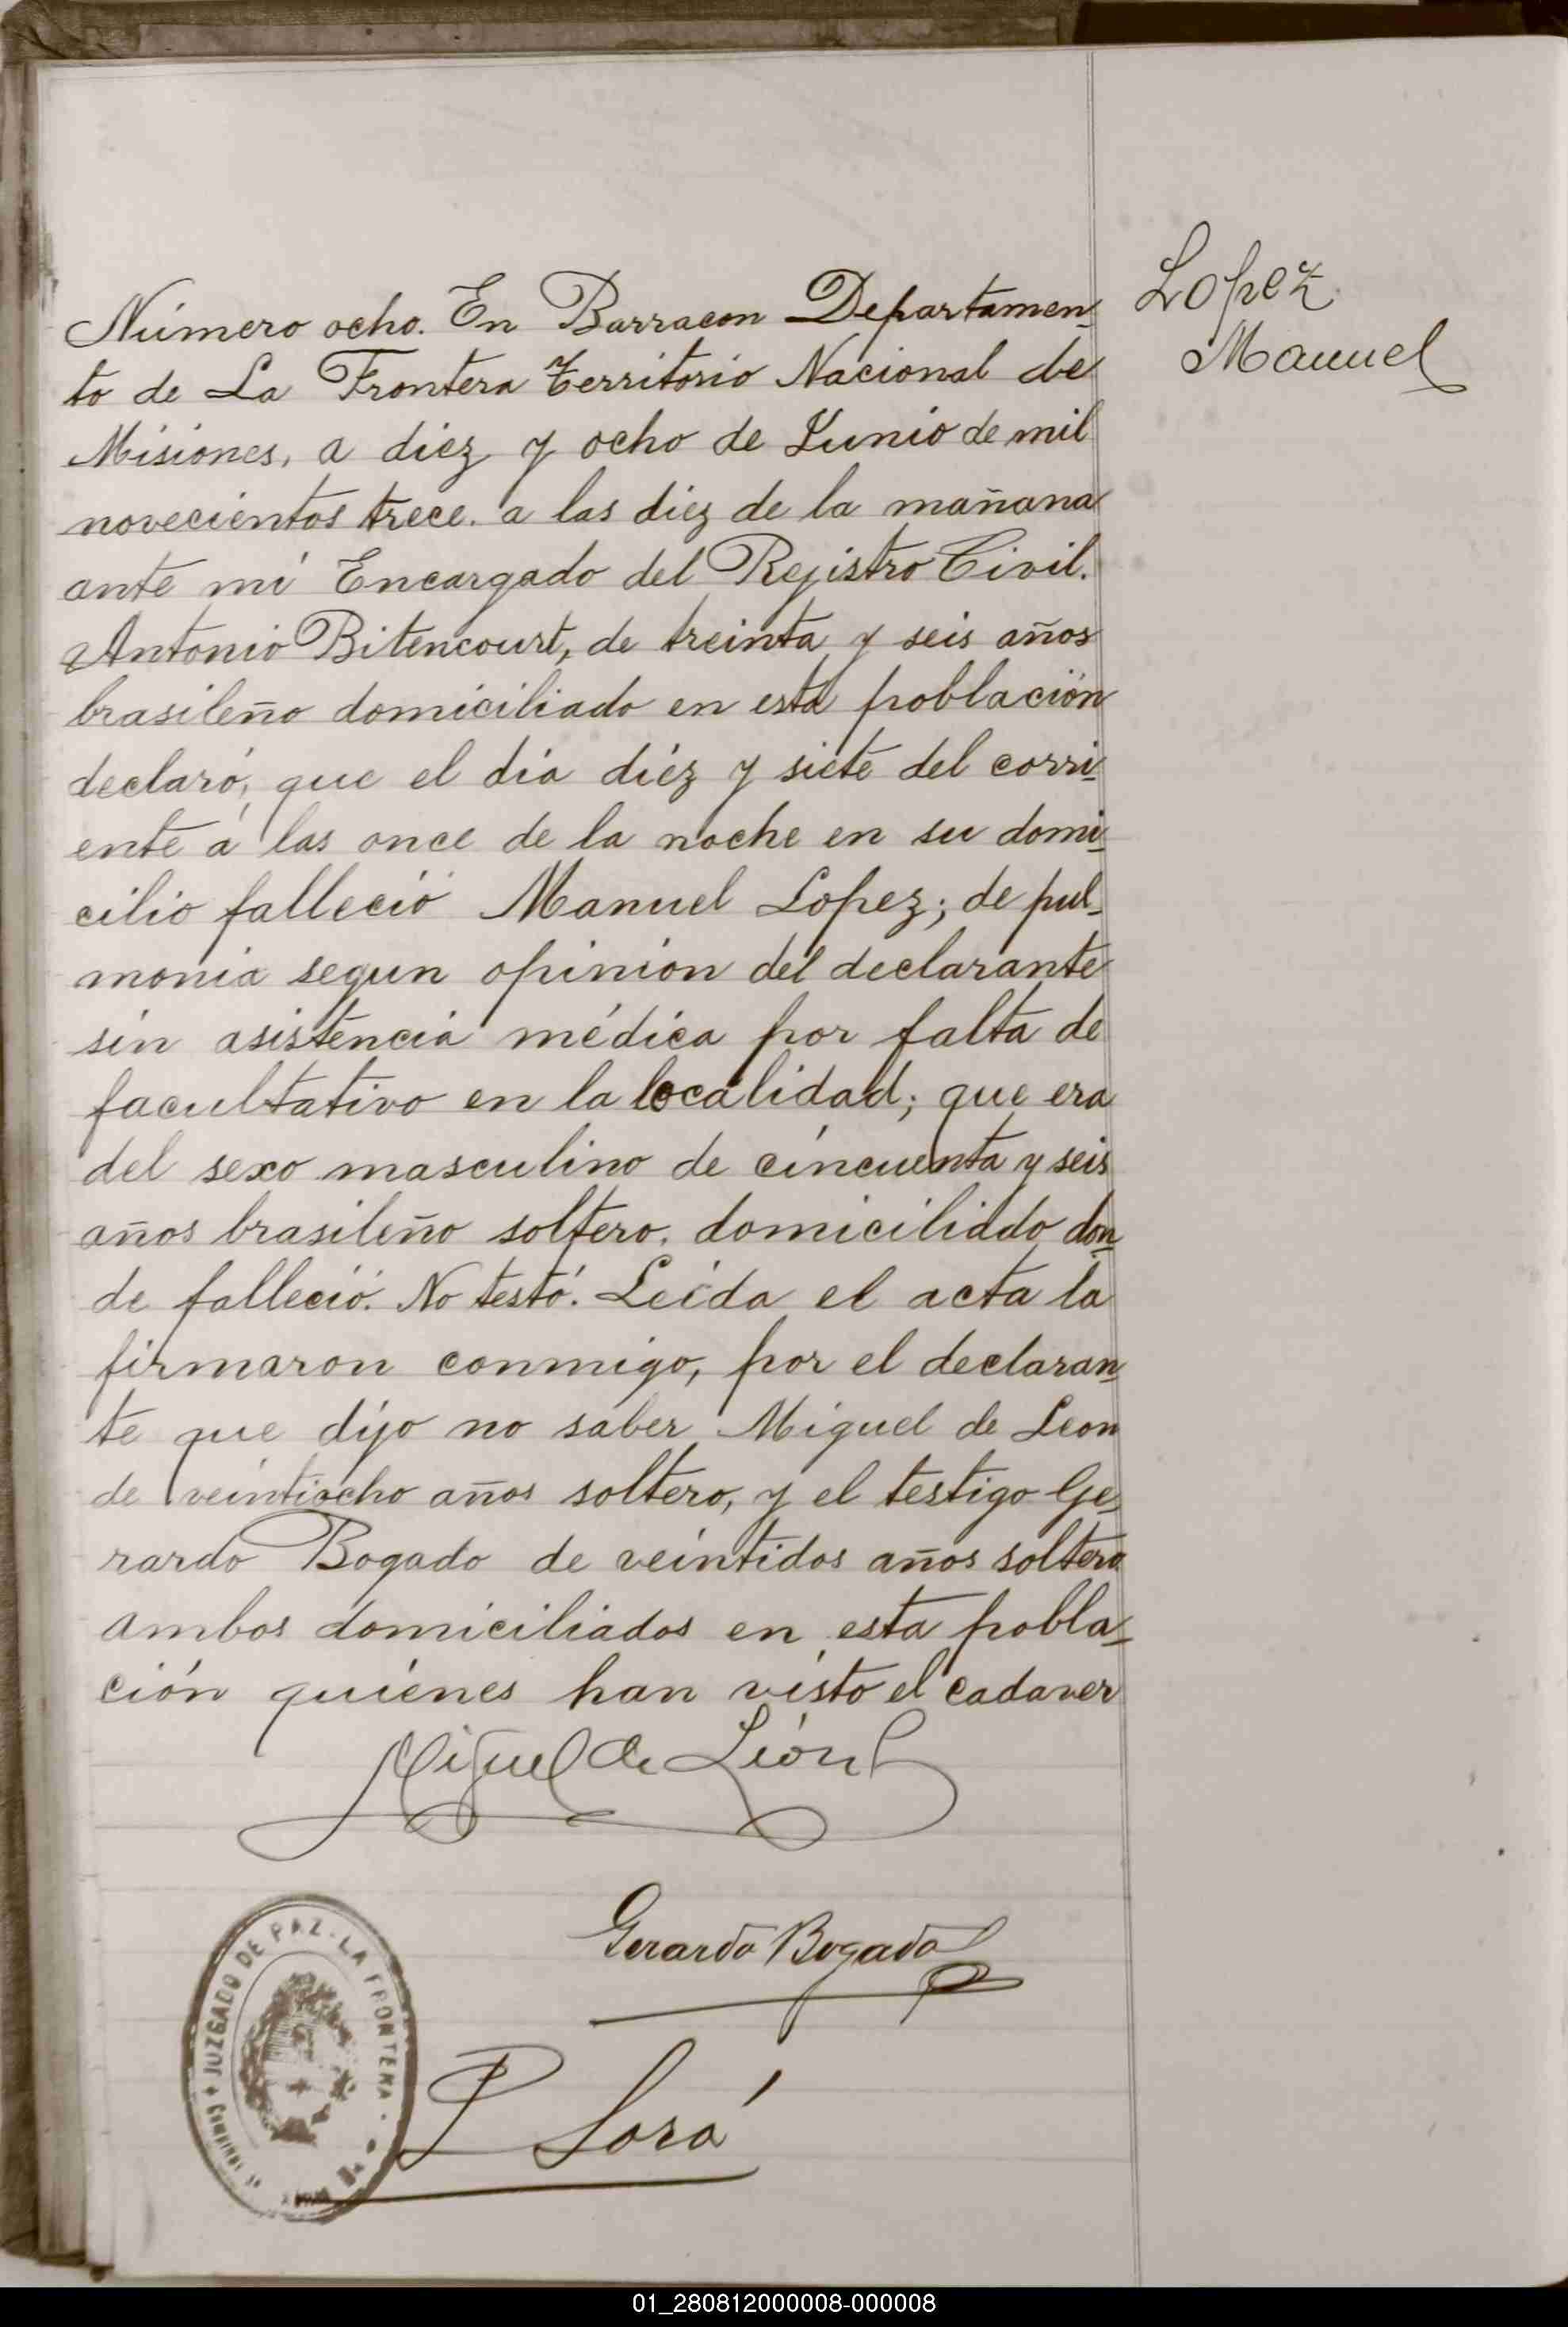 Lopez
Manuel
Número ocho. En Barracon Departamen-
to de La Frontera Territorio Nacional de
Misiones, a diez y ocho de Junio de mil
novecientos trece. a las diez de la mañana
ante mi Encargado del Rejistro Civil.
Antonio Bitencourt, de treinta y seis años
brasileño domiciliado en esta población
declaró, que el día diéz y siete del corri-
ente á las once de la noche en su domi-
cilio falleció Manuel Lopez; de pul-
monia segun opinión del declarante
sin asistencia médica por falta de
facultativo en la localidad; que era
del sexo masculino de cincuenta y seis
años brasileño soltero. domiciliado don-
de falleció. No testó. Leída el acta la
firmaron conmigo, por el declaran-
te que dijo no saber Miguel de Leon
de veintiocho años soltero, y el testigo Ge-
rardo Bogado de veintidos años soltero
ambos domiciliados en esta pobla-
ción quiénes han visto el cadaver
Miguel de León
Gerardo Bogado
JUZGADO DE PAZ - LA FRONTERA
P Lorá
01_280812000008-000008